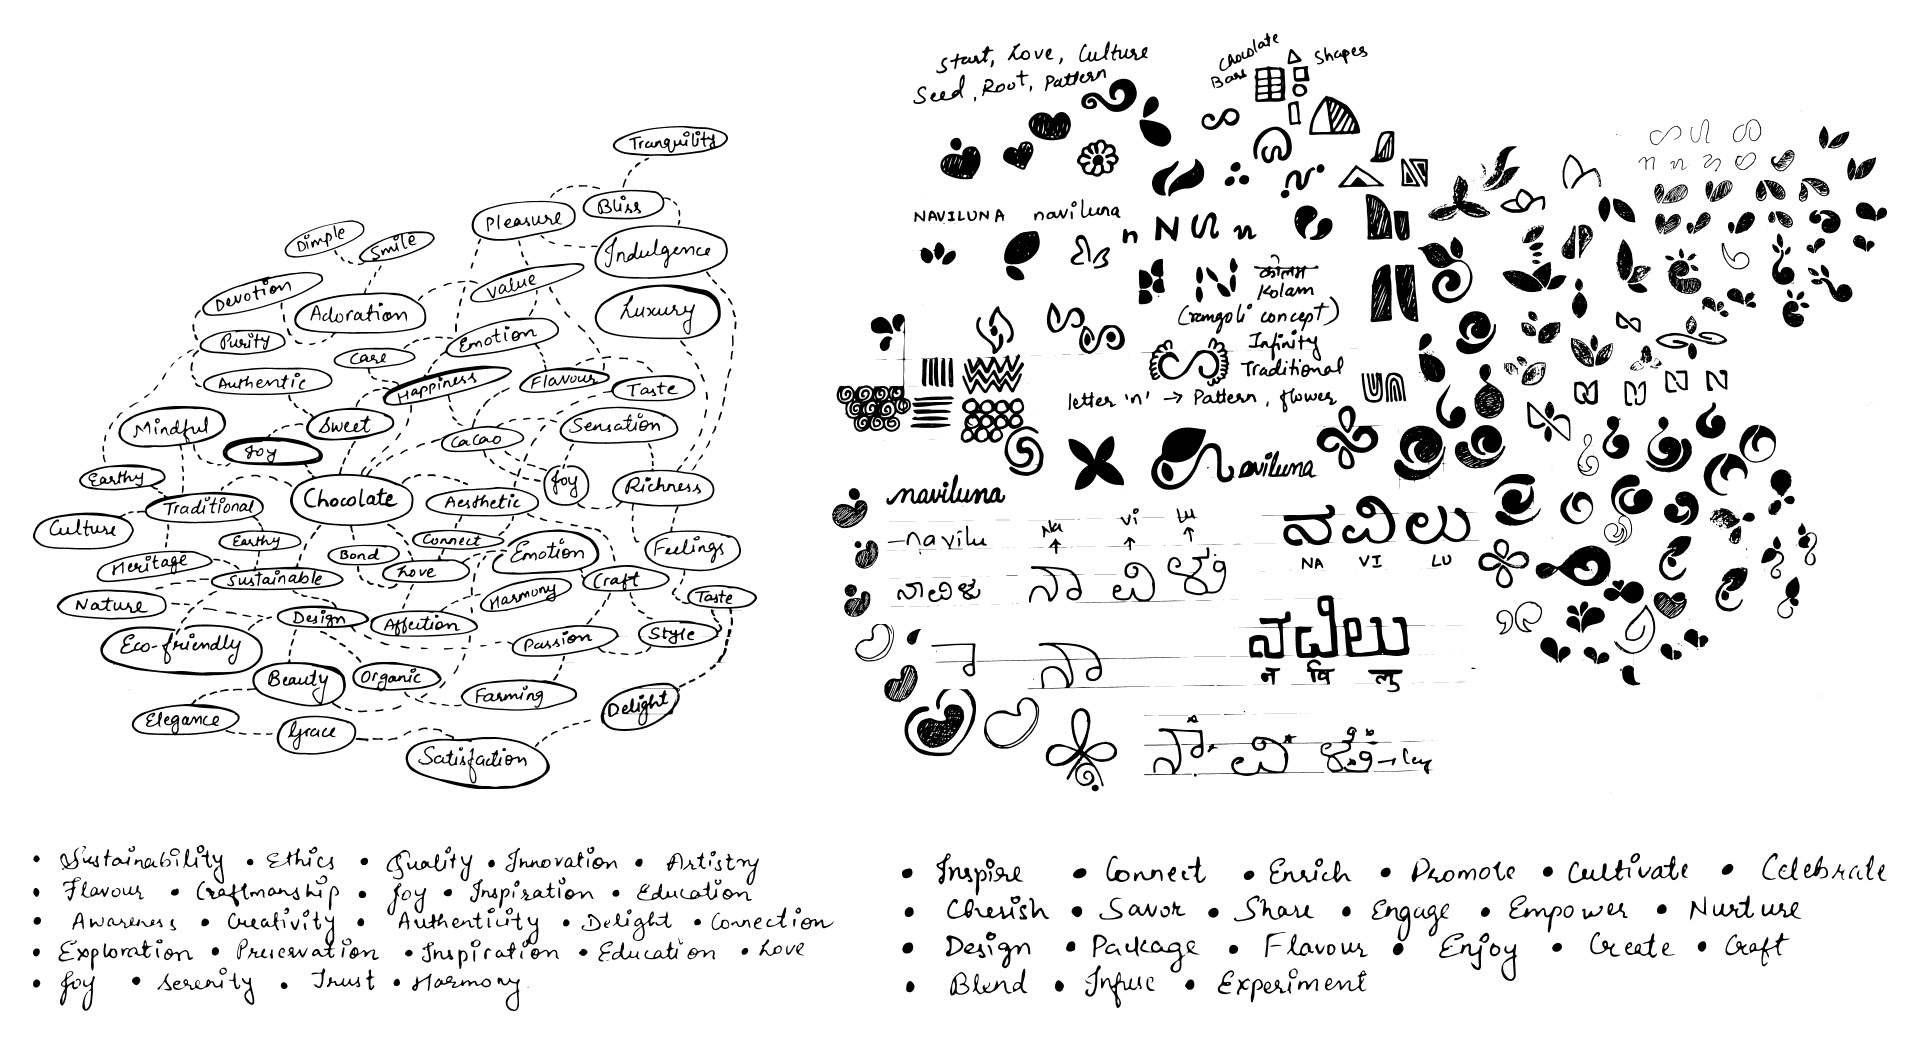 Tranquility
Bliss
Pleasure
Indulgence
Dimple
Smile
Value
Devotion
Adoration
Luxury
Purity
Emotion
Care
Authentic
Happiness
Flavour
Taste
Mindful
Sweet
Joy
Cacao
Sensation
Earthy
Traditional
Chocolate
Aesthetic
Joy
Richness
Culture
Earthy
Bond
Connect
Emotion
Feelings
Heritage
Sustainable
Love
Craft
Nature
Design
Affection
Harmony
Taste
Eco-friendly
Passion
Style
Beauty
Organic
Farming
Delight
Elegance
Grace
Satisfaction
• Sustainability • Ethics • Quality • Innovation • Artistry
• Flavour • Craftmanship • Joy • Inspiration • Education
• Awareness • Creativity • Authenticity • Delight • Connection
• Exploration • Preservation • Inspiration • Education • Love
• Joy • Serenity • Trust • Harmony
Start, Love, Culture
Seed, Root, Pattern
Chocolate
Bars
Shapes
NAVILUNA naviluna
n N n
कोलम
Kolam
(rangoli concept)
Infinity
Traditional
letter 'n' → Pattern, flower
naviluna
naviluna
-navilu
Na Vi Lu
ನವಿಲು
NA VI LU
ನವಿಲು
न वि लु
• Inspire • Connect • Enrich • Promote • Cultivate • Celebrate
• Cherish • Savor • Share • Engage • Empower • Nurture
• Design • Package • Flavour • Enjoy • Create • Craft
• Blend • Infuse • Experiment